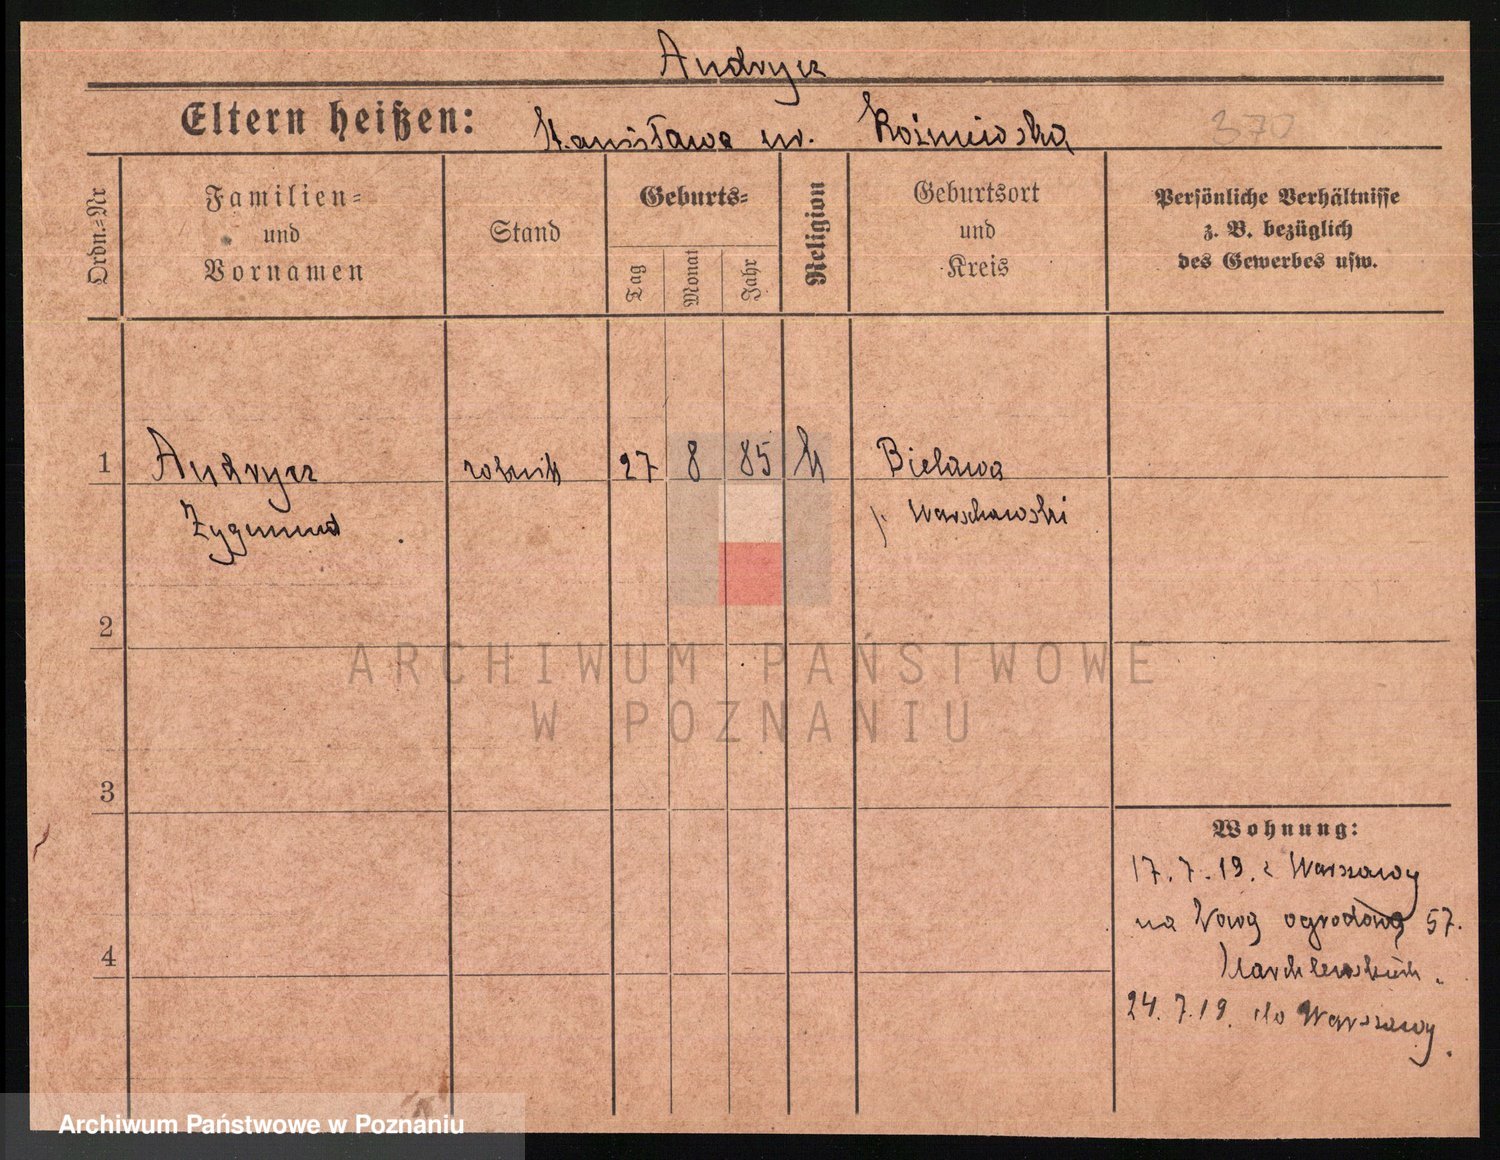 Andrycz
Eltern heißen:
Stanisława ur. Koźmińska
370
Ordn.=Nr
Familien=
und
Vornamen
Stand
Geburts=
Tag
Monat
Jahr
Religion
Geburtsort
und
Kreis
Persönliche Verhältnisse
z. B. bezüglich
des Gewerbes usw.
1
Andrycz
rolnik
27
8
85
k
Bielawa
Zygmund
p. Warschawski
2
ARCHIWUM PAŃSTWOWE
W POZNANIU
3
Wohnung:
17.7.19. z Warszawy
na Nową ogrodową 57.
4
24.7.19. do Warszawy.
Archiwum Państwowe w Poznaniu